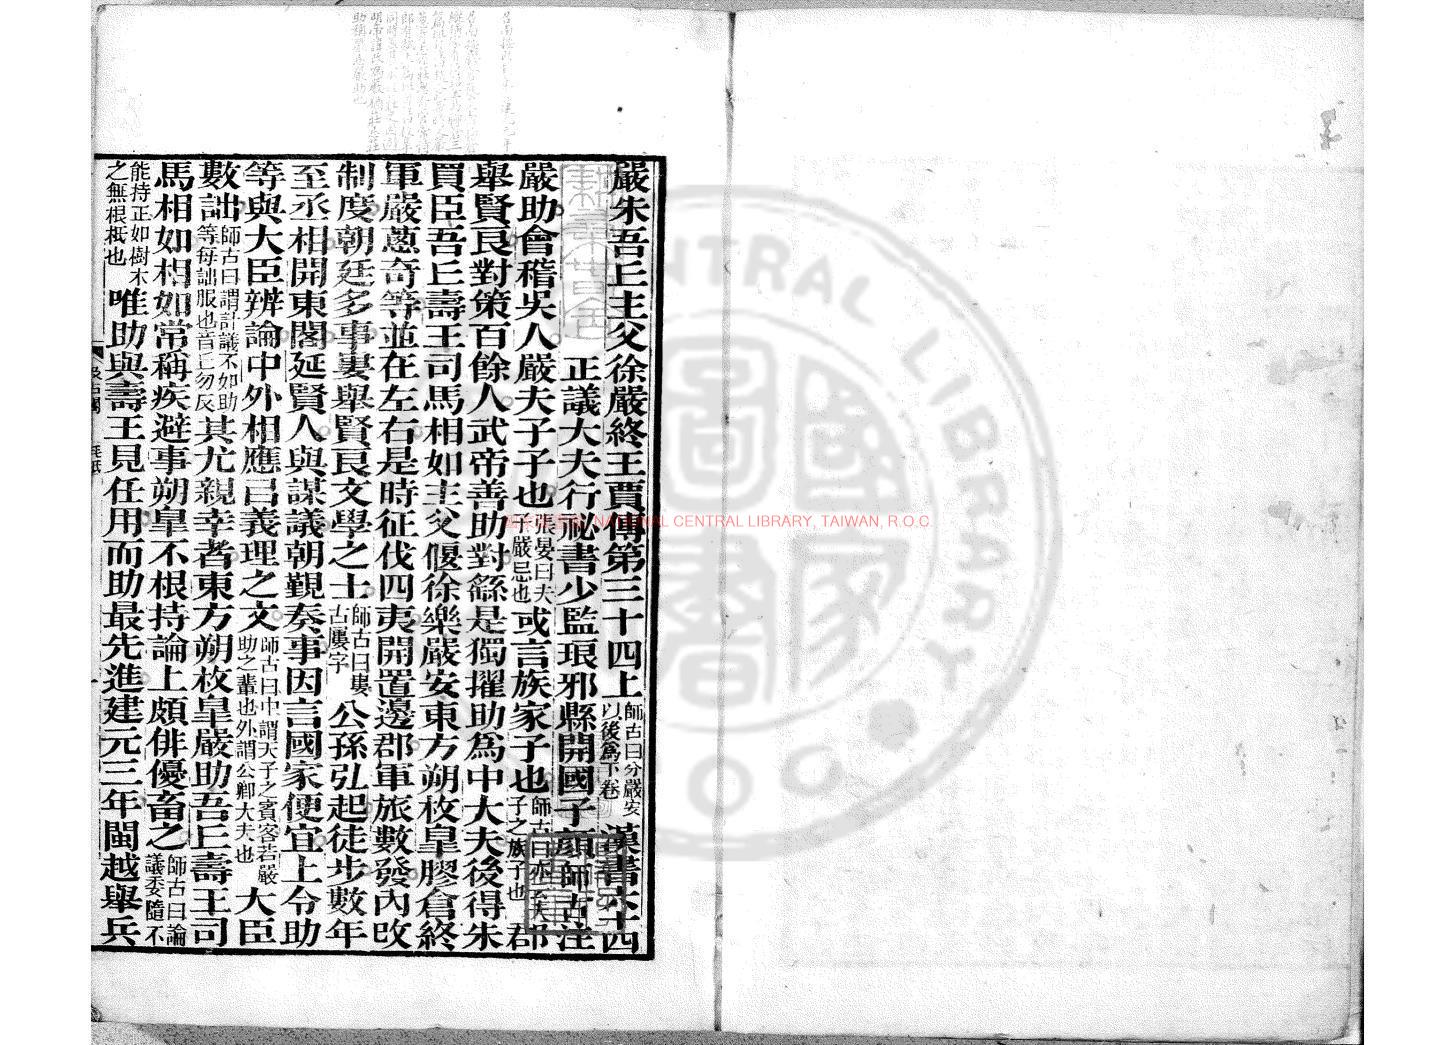 嚴朱吾丘主父徐嚴終王賈傳第三十四上師古曰分嚴安以後爲下卷漢書六十四
正議大夫行祕書少監琅邪縣開國子顏師古注
嚴助會稽吳人嚴夫子子也張晏曰夫子嚴忌也或言族家子也師古曰亦云夫子之族子也郡
舉賢良對策百餘人武帝善助對繇是獨擢助爲中大夫後得朱
買臣吾丘壽王司馬相如主父偃徐樂嚴安東方朔枚皐膠倉終
軍嚴蔥奇等並在左右是時征伐四夷開置邊郡軍旅數發內改
制度朝廷多事婁舉賢良文學之士師古曰婁古屢字公孫弘起徒步數年
至丞相開東閣延賢人與謀議朝覲奏事因言國家便宜上令助
等與大臣辨論中外相應以義理之文師古曰中謂天子之賓客若嚴助之輩也外謂公卿大夫也大臣
數詘師古曰謂計議不如助等每詘服也音丘勿反其尤親幸者東方朔枚皐嚴助吾丘壽王司
馬相如相如常稱疾避事朔皐不根持論上頗俳優畜之師古曰論議委隨不
能持正如樹木之無根柢也唯助與壽王見任用而助最先進建元三年閩越舉兵
NATIONAL CENTRAL LIBRARY, TAIWAN, R.O.C.
CENTRAL LIBRARY